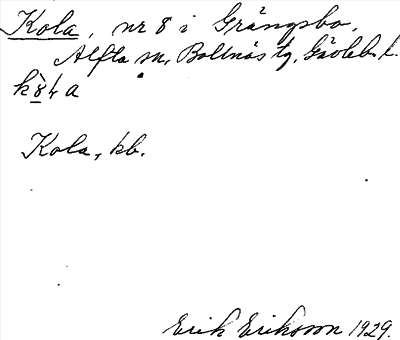 Kola, nr 8 i Grängsbo,
Alfta sn, Bollnäs tg, Gävleb. l.
Kola, kb.
Erik Erikson 1929.